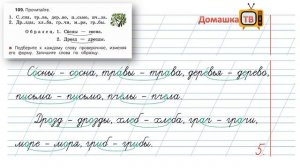 109. Прочитайте.
Домашка
ТВ
Образец. 1. Сосны — сосна.
2. Дрозд — дрозды.
• Подберите к каждому слову проверочное, изменяя его форму. Запишите слова по образцу.
Сосны – сосна, травы – трава, деревья – дерево,
письма – письмо, пчёлы – пчела.
Дрозд – дрозды, хлеб – хлеба, грач – грачи,
море – моря, гриб – грибы.
5.